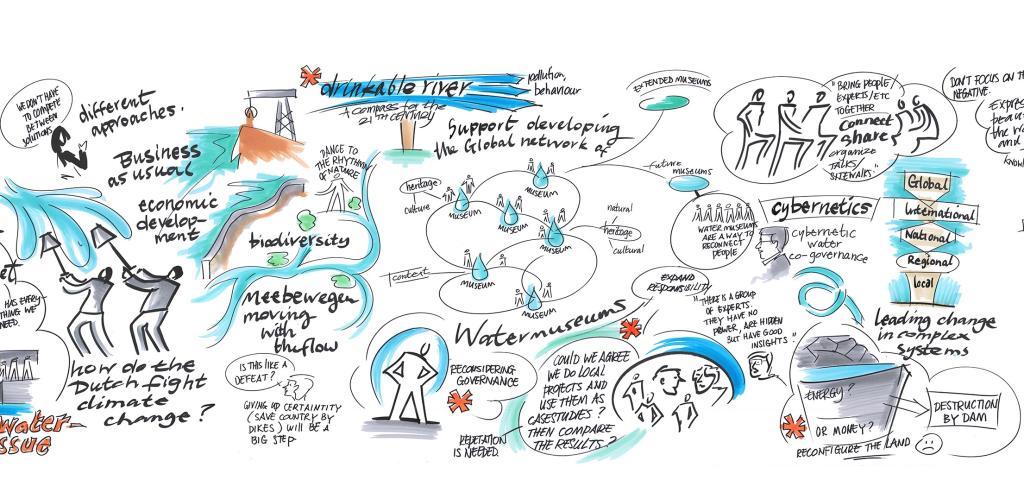 WE DON'T HAVE
TO COMPETE
BETWEEN
SOLUTIONS
different
approaches.
Business
as usual
economic
develop-
ment
HAS EVERY-
THING WE
NEED.
how do the
Dutch fight
climate
change?
water-
issue
drinkable river
pollution,
behaviour
A compass for the
21th century
Support developing
the Global network of
DANCE TO
THE RHYTHM
OF NATURE
biodiversity
Meebewegen
moving
with
the flow
IS THIS LIKE A
DEFEAT?
GIVING UP CERTAINTITY
(SAVE COUNTRY BY
DIKES) WILL BE A
BIG STEP
heritage
culture
context
MUSEUM
MUSEUM
MUSEUM
MUSEUM
MUSEUM
MUSEUM
natural
heritage
cultural
EXTENDED MUSEUMS
future
museums
WATER MUSEUMS
ARE A WAY TO
RECONNECT
PEOPLE
Watermuseums
EXPAND
RESPONSIBILITY
RECONSIDERING
GOVERNANCE
REPETATION
IS NEEDED.
COULD WE AGREE
WE DO LOCAL
PROJECTS AND
USE THEM AS
CASESTUDIES?
THEN COMPARE
THE RESULTS?
"THERE IS A GROUP
OF EXPERTS.
THEY HAVE NO
POWER, ARE HIDDEN
BUT HAVE GOOD
INSIGHTS"
"BRING PEOPLE/
EXPERTS/ETC
TOGETHER
Connect
Share
organize
TALKS/
SITEWALKS."
DON'T FOCUS ON TH
NEGATIVE.
cybernetics
cybernetic
water
co-governance
Global
International
National
Regional
local
Leading change
in complex
Systems
ENERGY?
OR MONEY?
RECONFIGURE THE LAND
DESTRUCTION
BY DAM